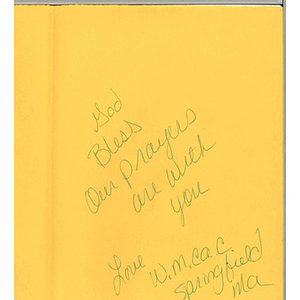 God
Bless
Our prayers
are with
you
Love W.M.C.A.C.
Springfield
Ma